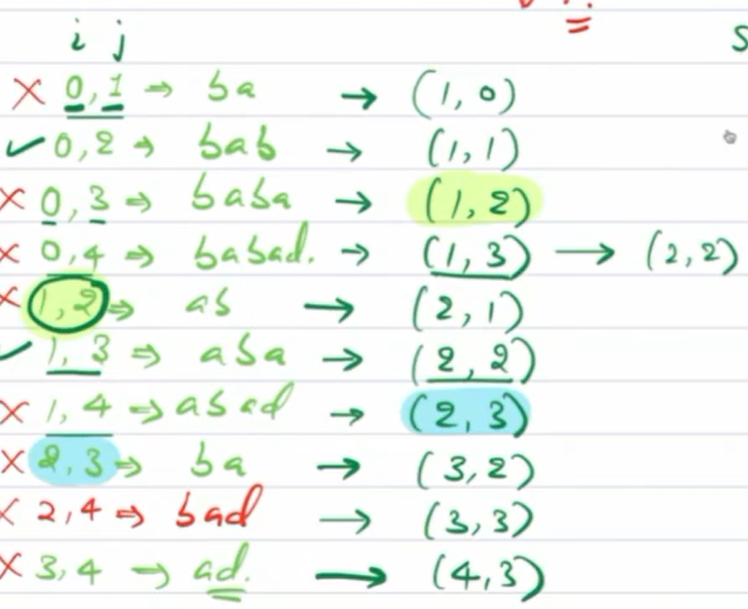 i j
× 0,1 ⇒ ba → (1,0)
✓ 0,2 → bab → (1,1)
× 0,3 ⇒ baba → (1,2)
× 0,4 ⇒ babad. → (1,3) → (2,2)
× 1,2 ⇒ ab → (2,1)
✓ 1,3 ⇒ aba → (2,2)
× 1,4 ⇒ abad → (2,3)
× 2,3 ⇒ ba → (3,2)
× 2,4 ⇒ bad → (3,3)
× 3,4 → ad. → (4,3)